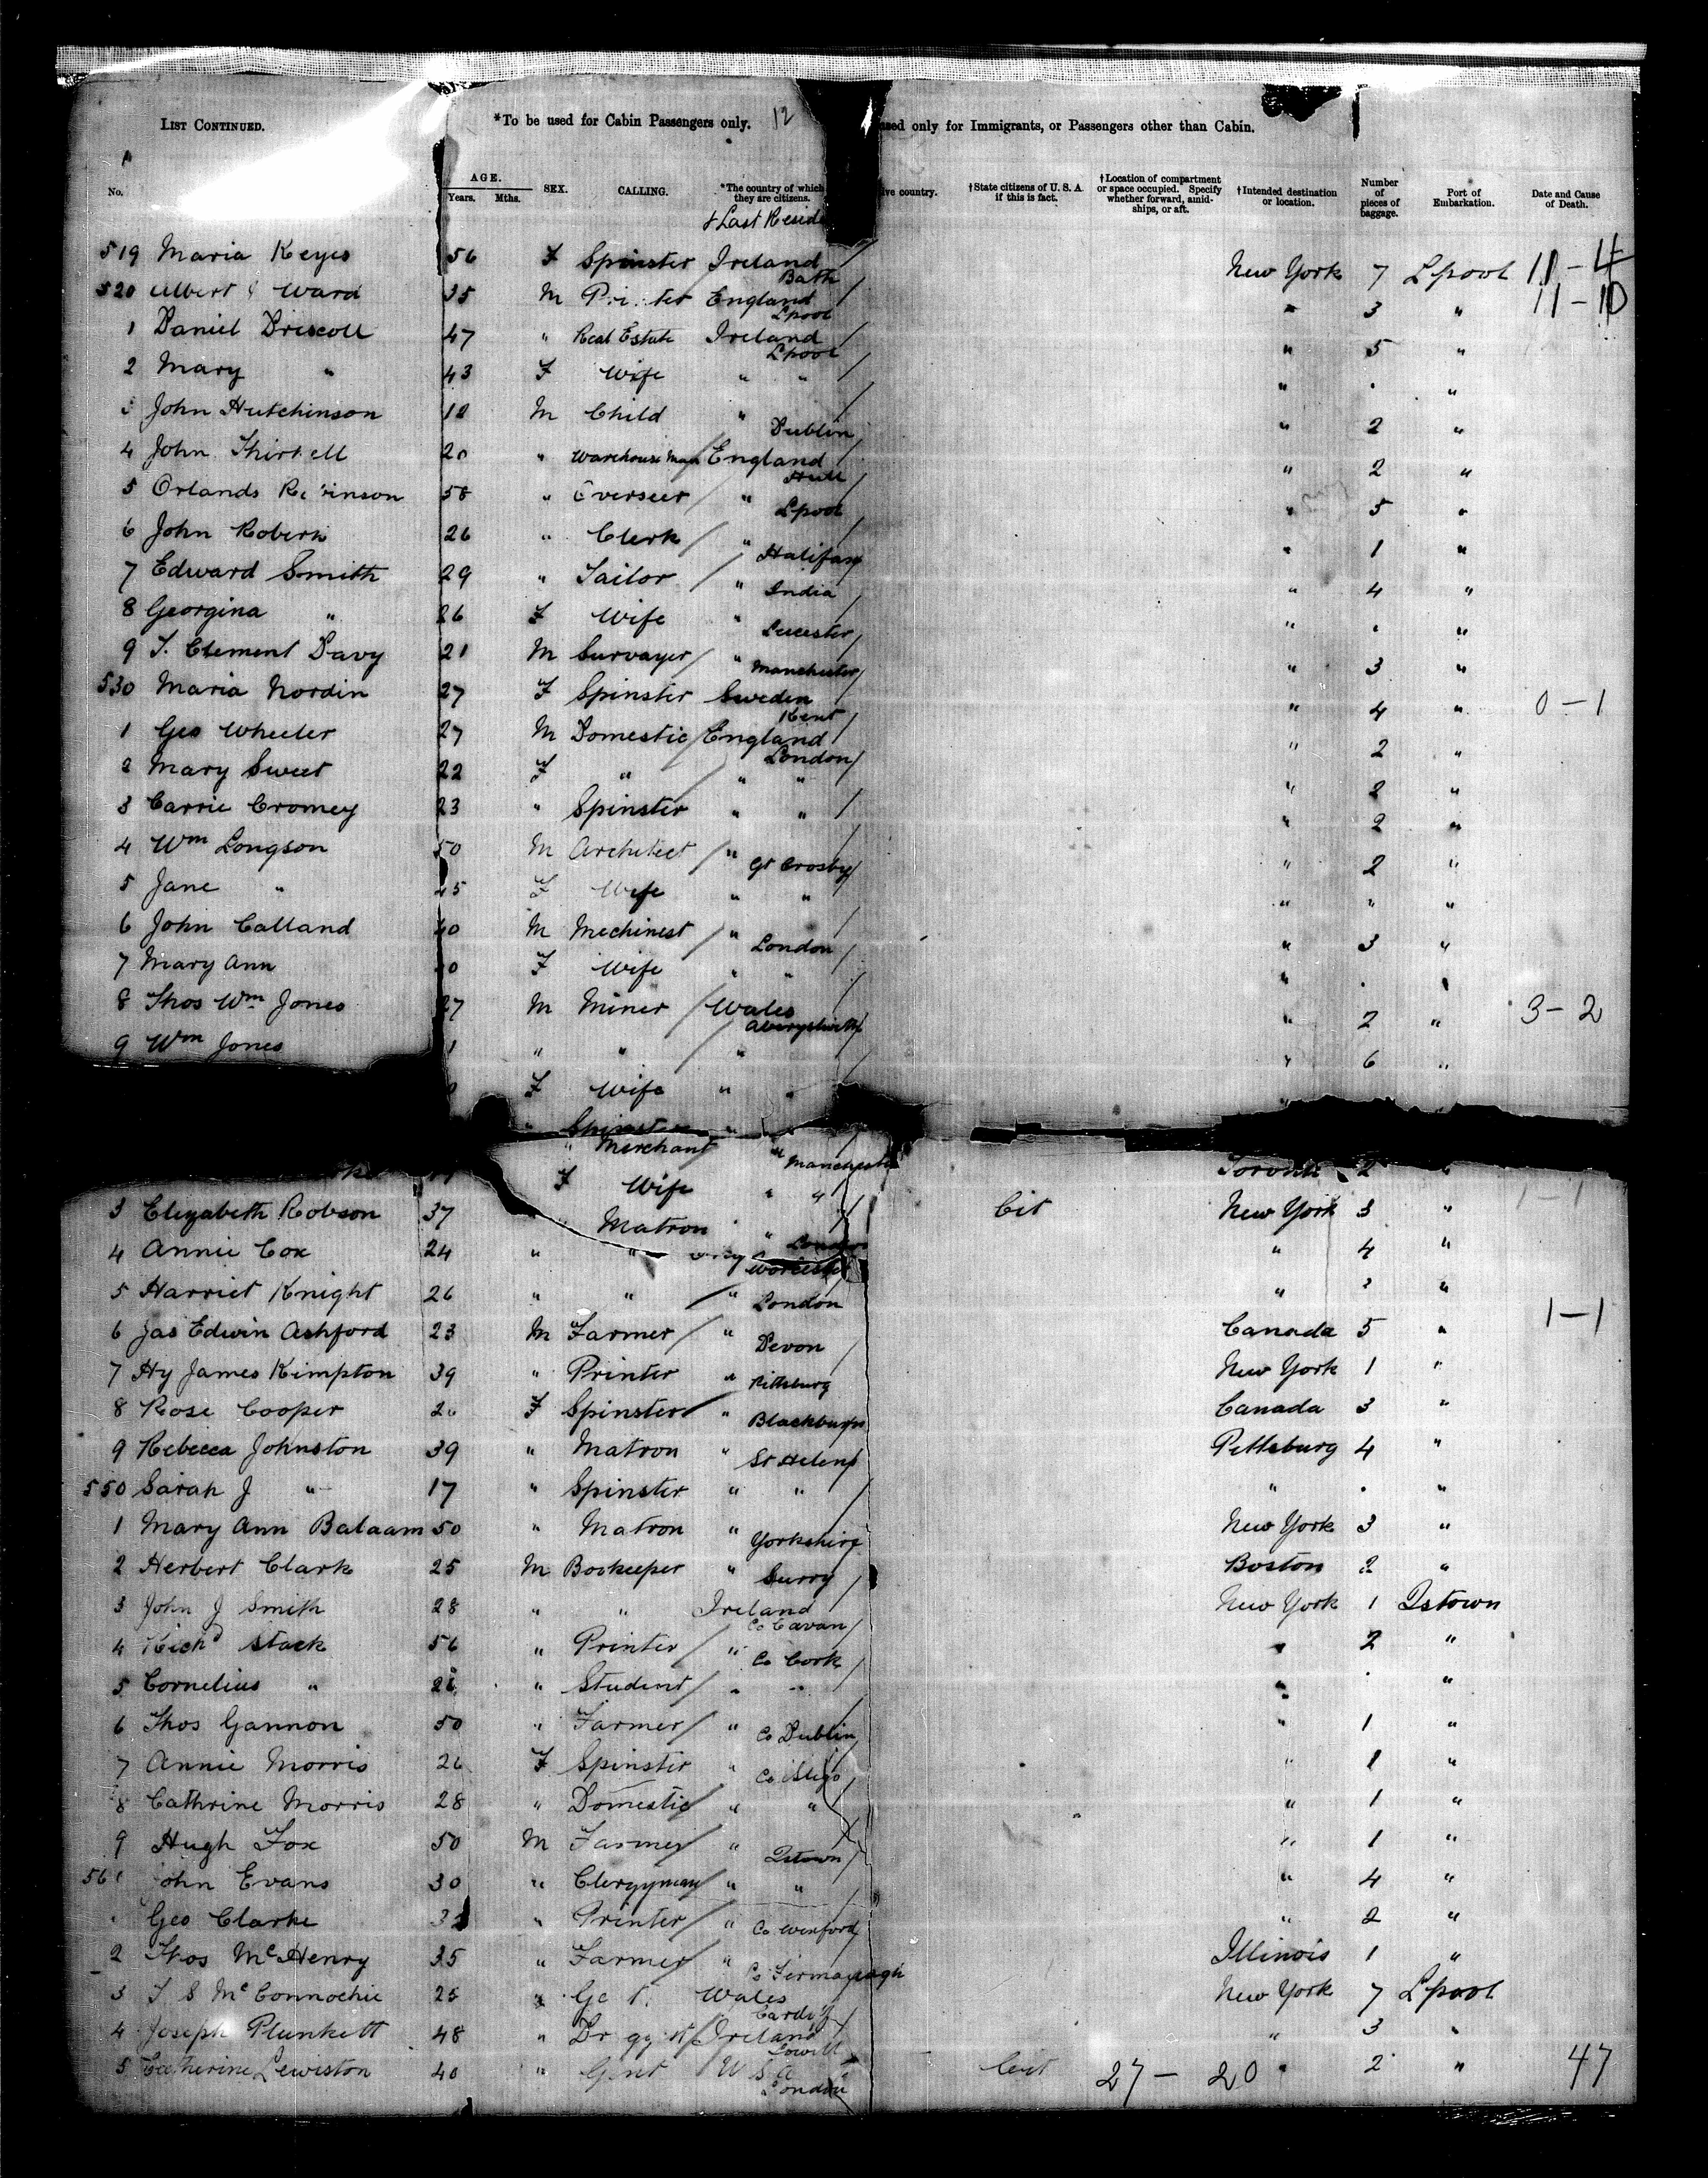 LIST CONTINUED. *To be used for Cabin Passengers only. 12 used only for Immigrants, or Passengers other than Cabin.
No. AGE. Years. Mths. SEX. CALLING. *The country of which they are citizens. country. †State citizens of U. S. A if this is fact. †Location of compartment or space occupied. Specify whether forward, amidships, or aft. †Intended destination or location. Number of pieces of baggage. Port of Embarkation. Date and Cause of Death.
& Last Resid
519 Maria Keyes 56 F Spinster Ireland Bath New York 7 Lpool 11-4
520 Albert J Ward 35 M England Lpool " 3 " 11-10
1 Daniel Driscoll 47 " Real Estate Ireland Lpool " 5 "
2 Mary " 43 F Wife " " " "
3 John Hutchinson M Child " Dublin " 2 "
4 John 20 " Warehouse Man England Hull " 2 "
5 Orlando 58 " Overseer " Lpool " 5 "
6 John Roberts 26 " Clerk " Halifax " 1 "
7 Edward Smith 29 " Tailor " India " 4 "
8 Georgina " 26 F Wife " Leicester " "
9 T. Clement Davy 21 M Survayer " Manchester " 3 "
530 Maria Nordin 27 F Spinster Sweden Kent " 4 " 0-1
1 Geo Wheeler 27 M Domestic England London " 2 "
2 Mary Sweet 22 F " " " " 2 "
3 Carrie Cromey 23 " Spinster " " " 2 "
4 Wm Longson 50 M Architect " Gt Crosby " 2 "
5 Jane " 45 F Wife " " " " "
6 John Calland 40 M Mechinest " London " 3 "
7 Mary Ann F Wife " " "
8 Thos Wm Jones 27 M Miner Wales Aberystwith " 2 " 3-2
9 Wm Jones " " " " 6 "
F Wife "
" Spinster "
" Merchant " Manchester Toronto 2
F Wife " "
3 Elizabeth Robson 37 Matron " London Cit New York 3 " 1-1
4 Annie Cox 24 " " Worcester " 4 "
5 Harriet Knight 26 " " " London " "
6 Jas Edwin Ashford 23 M Farmer " Devon Canada 5 " 1-1
7 Hy James Kimpton 39 " Printer " Pittsburg New York 1 "
8 Rose Cooper F Spinster " Blackburn Canada 3 "
9 Rebecca Johnston 39 " Matron " St Helens Pittsburg 4 "
550 Sarah J " 17 " Spinster " " " "
1 Mary Ann Balaam 50 " Matron " Yorkshire New York 3 "
2 Herbert Clark 25 M Bookeeper " Surry Boston 2 "
3 John J Smith 28 " " Ireland Co Cavan New York 1 Qstown
4 Richd Stack 56 " Printer " Co Cork " 2 "
5 Cornelius " " Student " " " "
6 Thos Gannon 50 " Farmer " Co Dublin " 1 "
7 Annie Morris 26 F Spinster " Co Sligo " 1 "
8 Cathrine Morris 28 " Domestic " " " 1 "
9 Hugh Fox 50 M Farmer " Qstown " 1 "
John Evans 30 " Clergyman " " " 4 "
Geo Clarke " Printer " Co Wexford " 2 "
2 Thos McHenry 35 " Farmer " Co Fermanagh Illinois 1 "
3 T S McConnochie 25 " Wales Cardiff New York 7 Lpool
4 Joseph Plunkett 48 " Ireland Lowell " 3 "
5 Catherine Lewiston 40 " Gent U S A London Cit 27-20 " 2 " 47